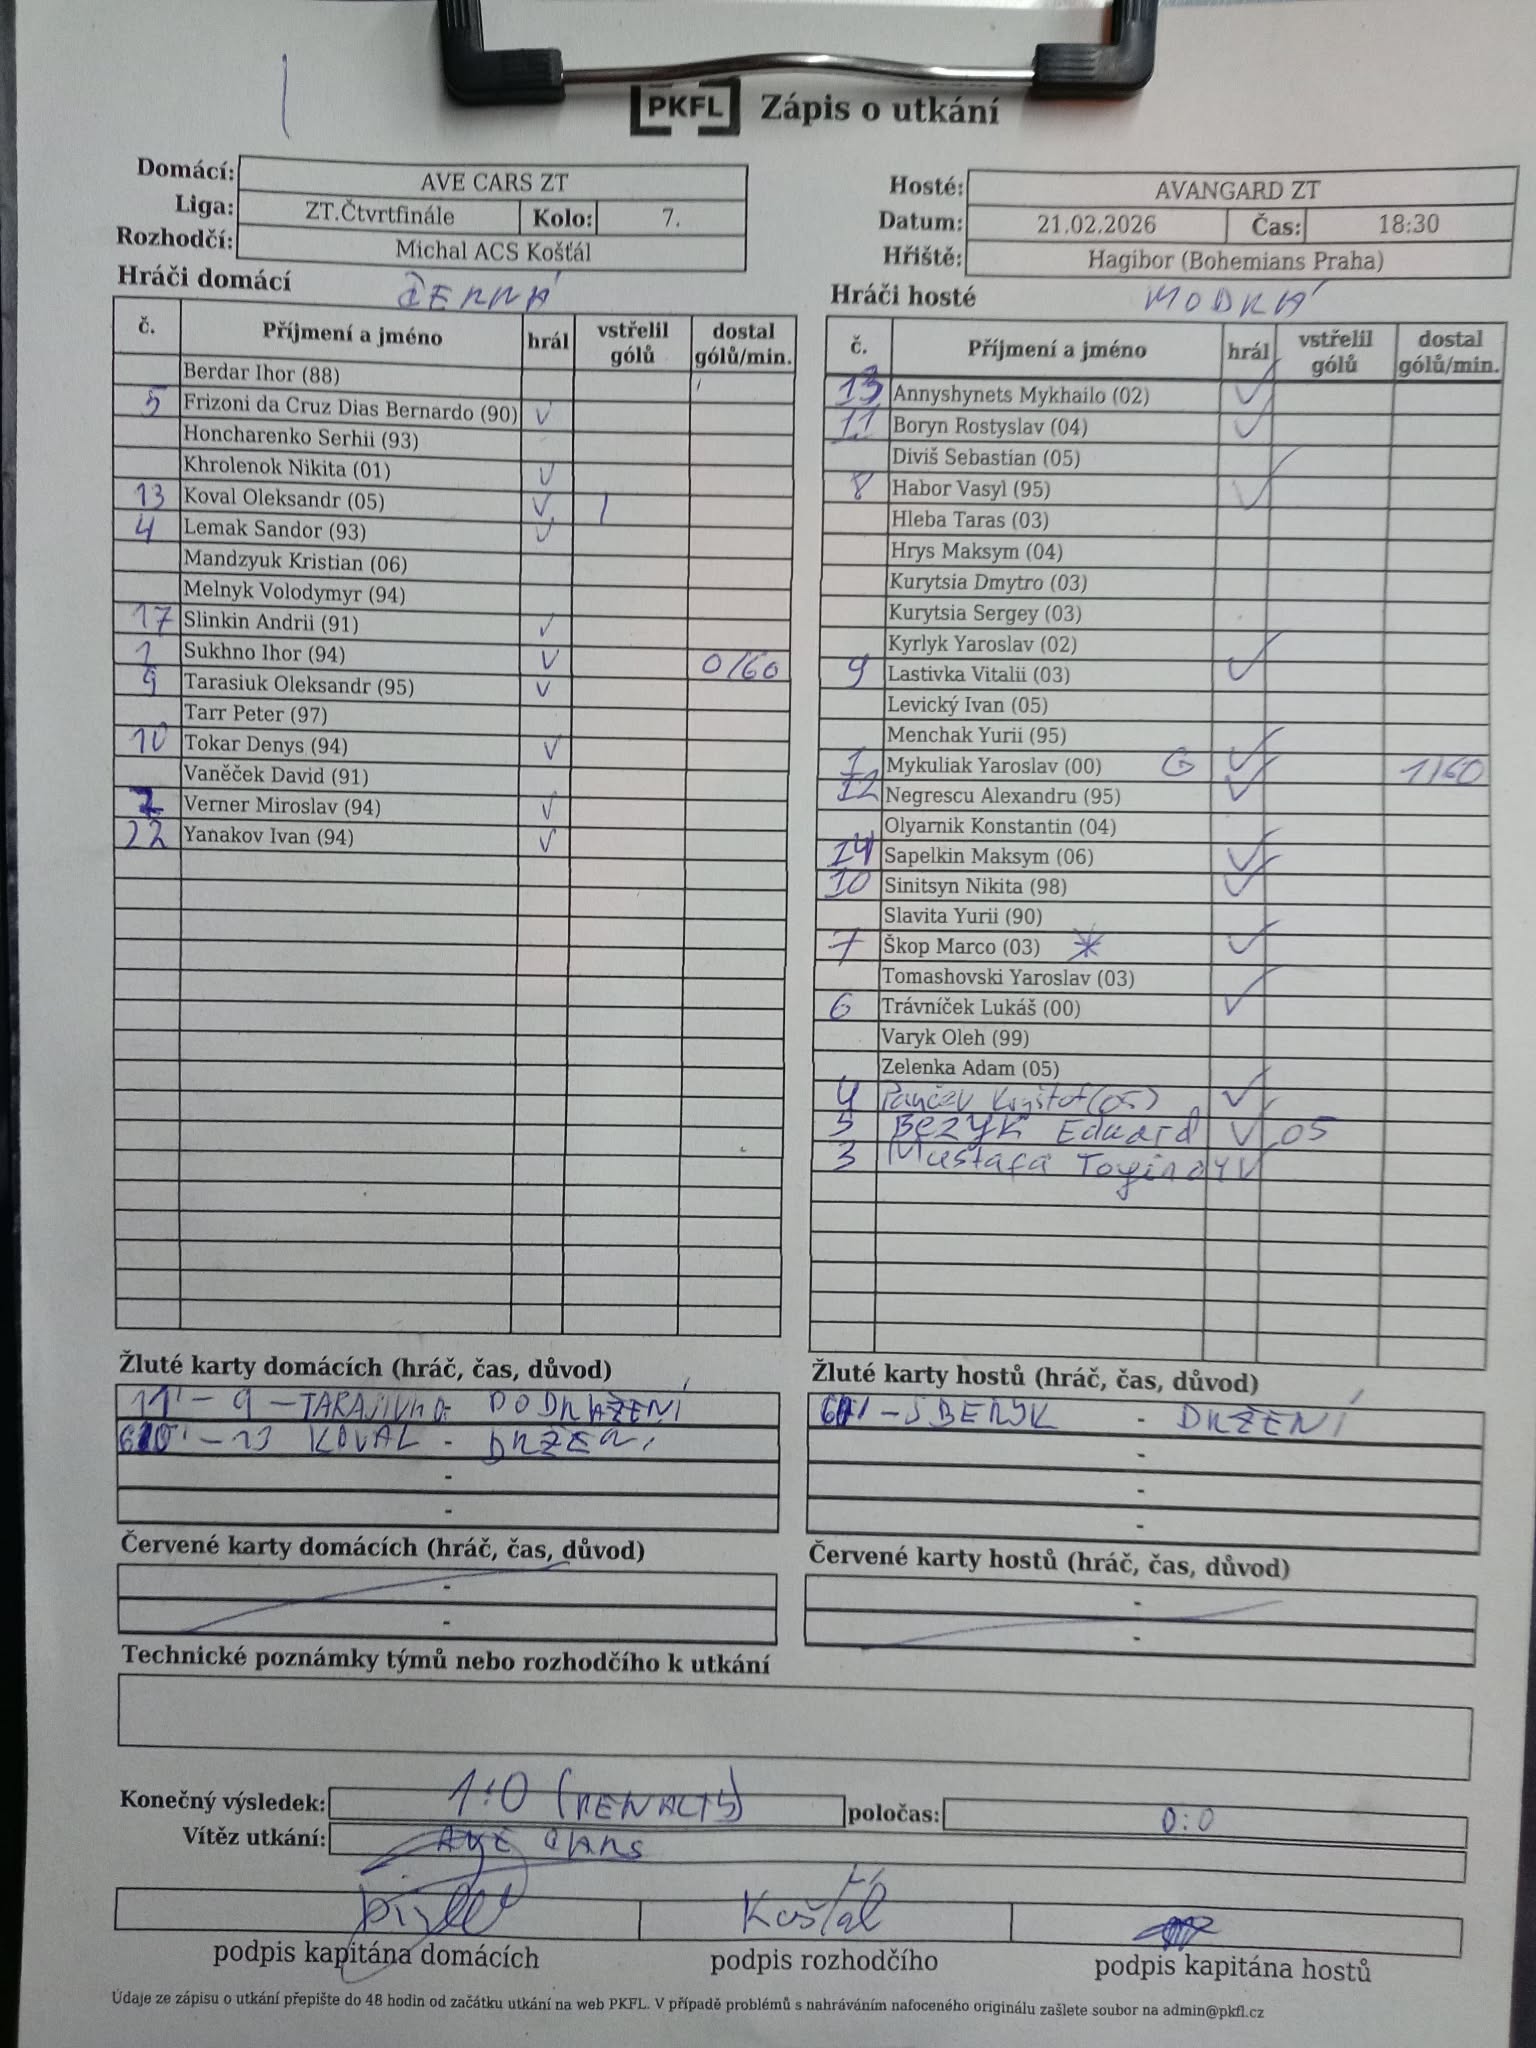 PKFL Zápis o utkání
Domácí: AVE CARS ZT
Liga: ZT.Čtvrtfinále Kolo: 7.
Rozhodčí: Michal ACS Košťál
Hosté: AVANGARD ZT
Datum: 21.02.2026 Čas: 18:30
Hřiště: Hagibor (Bohemians Praha)
Hráči domácí ČERNÁ
č. Příjmení a jméno hrál vstřelil gólů dostal gólů/min.
Berdar Ihor (88)
5 Frizoni da Cruz Dias Bernardo (90) ✓
Honcharenko Serhii (93)
Khrolenok Nikita (01) ✓
13 Koval Oleksandr (05) ✓ 1
4 Lemak Sandor (93) ✓
Mandzyuk Kristian (06)
Melnyk Volodymyr (94)
17 Slinkin Andrii (91) ✓
1 Sukhno Ihor (94) ✓ 0/60
9 Tarasiuk Oleksandr (95) ✓
Tarr Peter (97)
10 Tokar Denys (94) ✓
Vaněček David (91)
7 Verner Miroslav (94) ✓
22 Yanakov Ivan (94) ✓
Hráči hosté MODRÁ
č. Příjmení a jméno hrál vstřelil gólů dostal gólů/min.
13 Annyshynets Mykhailo (02) ✓
11 Boryn Rostyslav (04) ✓
Diviš Sebastian (05)
8 Habor Vasyl (95) ✓
Hleba Taras (03)
Hrys Maksym (04)
Kurytsia Dmytro (03)
Kurytsia Sergey (03)
Kyrlyk Yaroslav (02)
9 Lastivka Vitalii (03) ✓
Levický Ivan (05)
Menchak Yurii (95)
1 Mykuliak Yaroslav (00) G ✓ 1/60
12 Negrescu Alexandru (95) ✓
Olyarnik Konstantin (04)
14 Sapelkin Maksym (06) ✓
10 Sinitsyn Nikita (98) ✓
Slavita Yurii (90)
7 Škop Marco (03) * ✓
Tomashovski Yaroslav (03)
6 Trávníček Lukáš (00) ✓
Varyk Oleh (99)
Zelenka Adam (05)
4 (05) ✓
5 Bezyk Eduard ✓ 05
3 Mustafa ✓
Žluté karty domácích (hráč, čas, důvod)
11' - 9 - - PODRAŽENÍ
- 13 KOVAL - DRŽENÍ
-
-
Žluté karty hostů (hráč, čas, důvod)
- DRŽENÍ
-
-
-
Červené karty domácích (hráč, čas, důvod)
-
-
Červené karty hostů (hráč, čas, důvod)
-
-
Technické poznámky týmů nebo rozhodčího k utkání
Konečný výsledek: 1:0 (PENALTY) poločas: 0:0
Vítěz utkání: AVE CARS
Košťál
podpis kapitána domácích podpis rozhodčího podpis kapitána hostů
Údaje ze zápisu o utkání přepište do 48 hodin od začátku utkání na web PKFL. V případě problémů s nahráváním nafoceného originálu zašlete soubor na admin@pkfl.cz